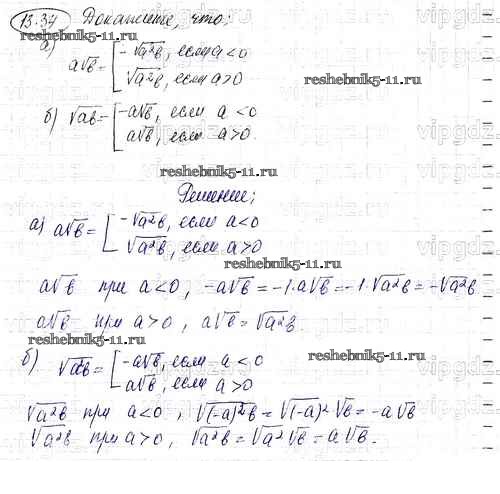 13.34 Докажите, что:
reshebnik5-11.ru
а) a√b = [ -√a²b, если a<0
√a²b, если a>0
reshebnik5-11.ru
б) √ab = [ -a√b, если a<0
a√b, если a>0.
vipgdz
reshebnik5-11.ru
Решение;
а) a√b = [ -√a²b, если a<0
√a²b, если a>0
reshebnik5-11.ru
a√b при a<0, -a√b = -1·a√b = -1·√a²b = -√a²b
a√b при a>0, a√b = √a²b.
reshebnik5-11.ru
б) √ab = [ -a√b, если a<0
a√b, если a>0
reshebnik5-11.ru
√a²b при a<0, √(-a)²b = √(-a)²·√b = -a√b
√a²b при a>0, √a²b = √a²√b = a√b.